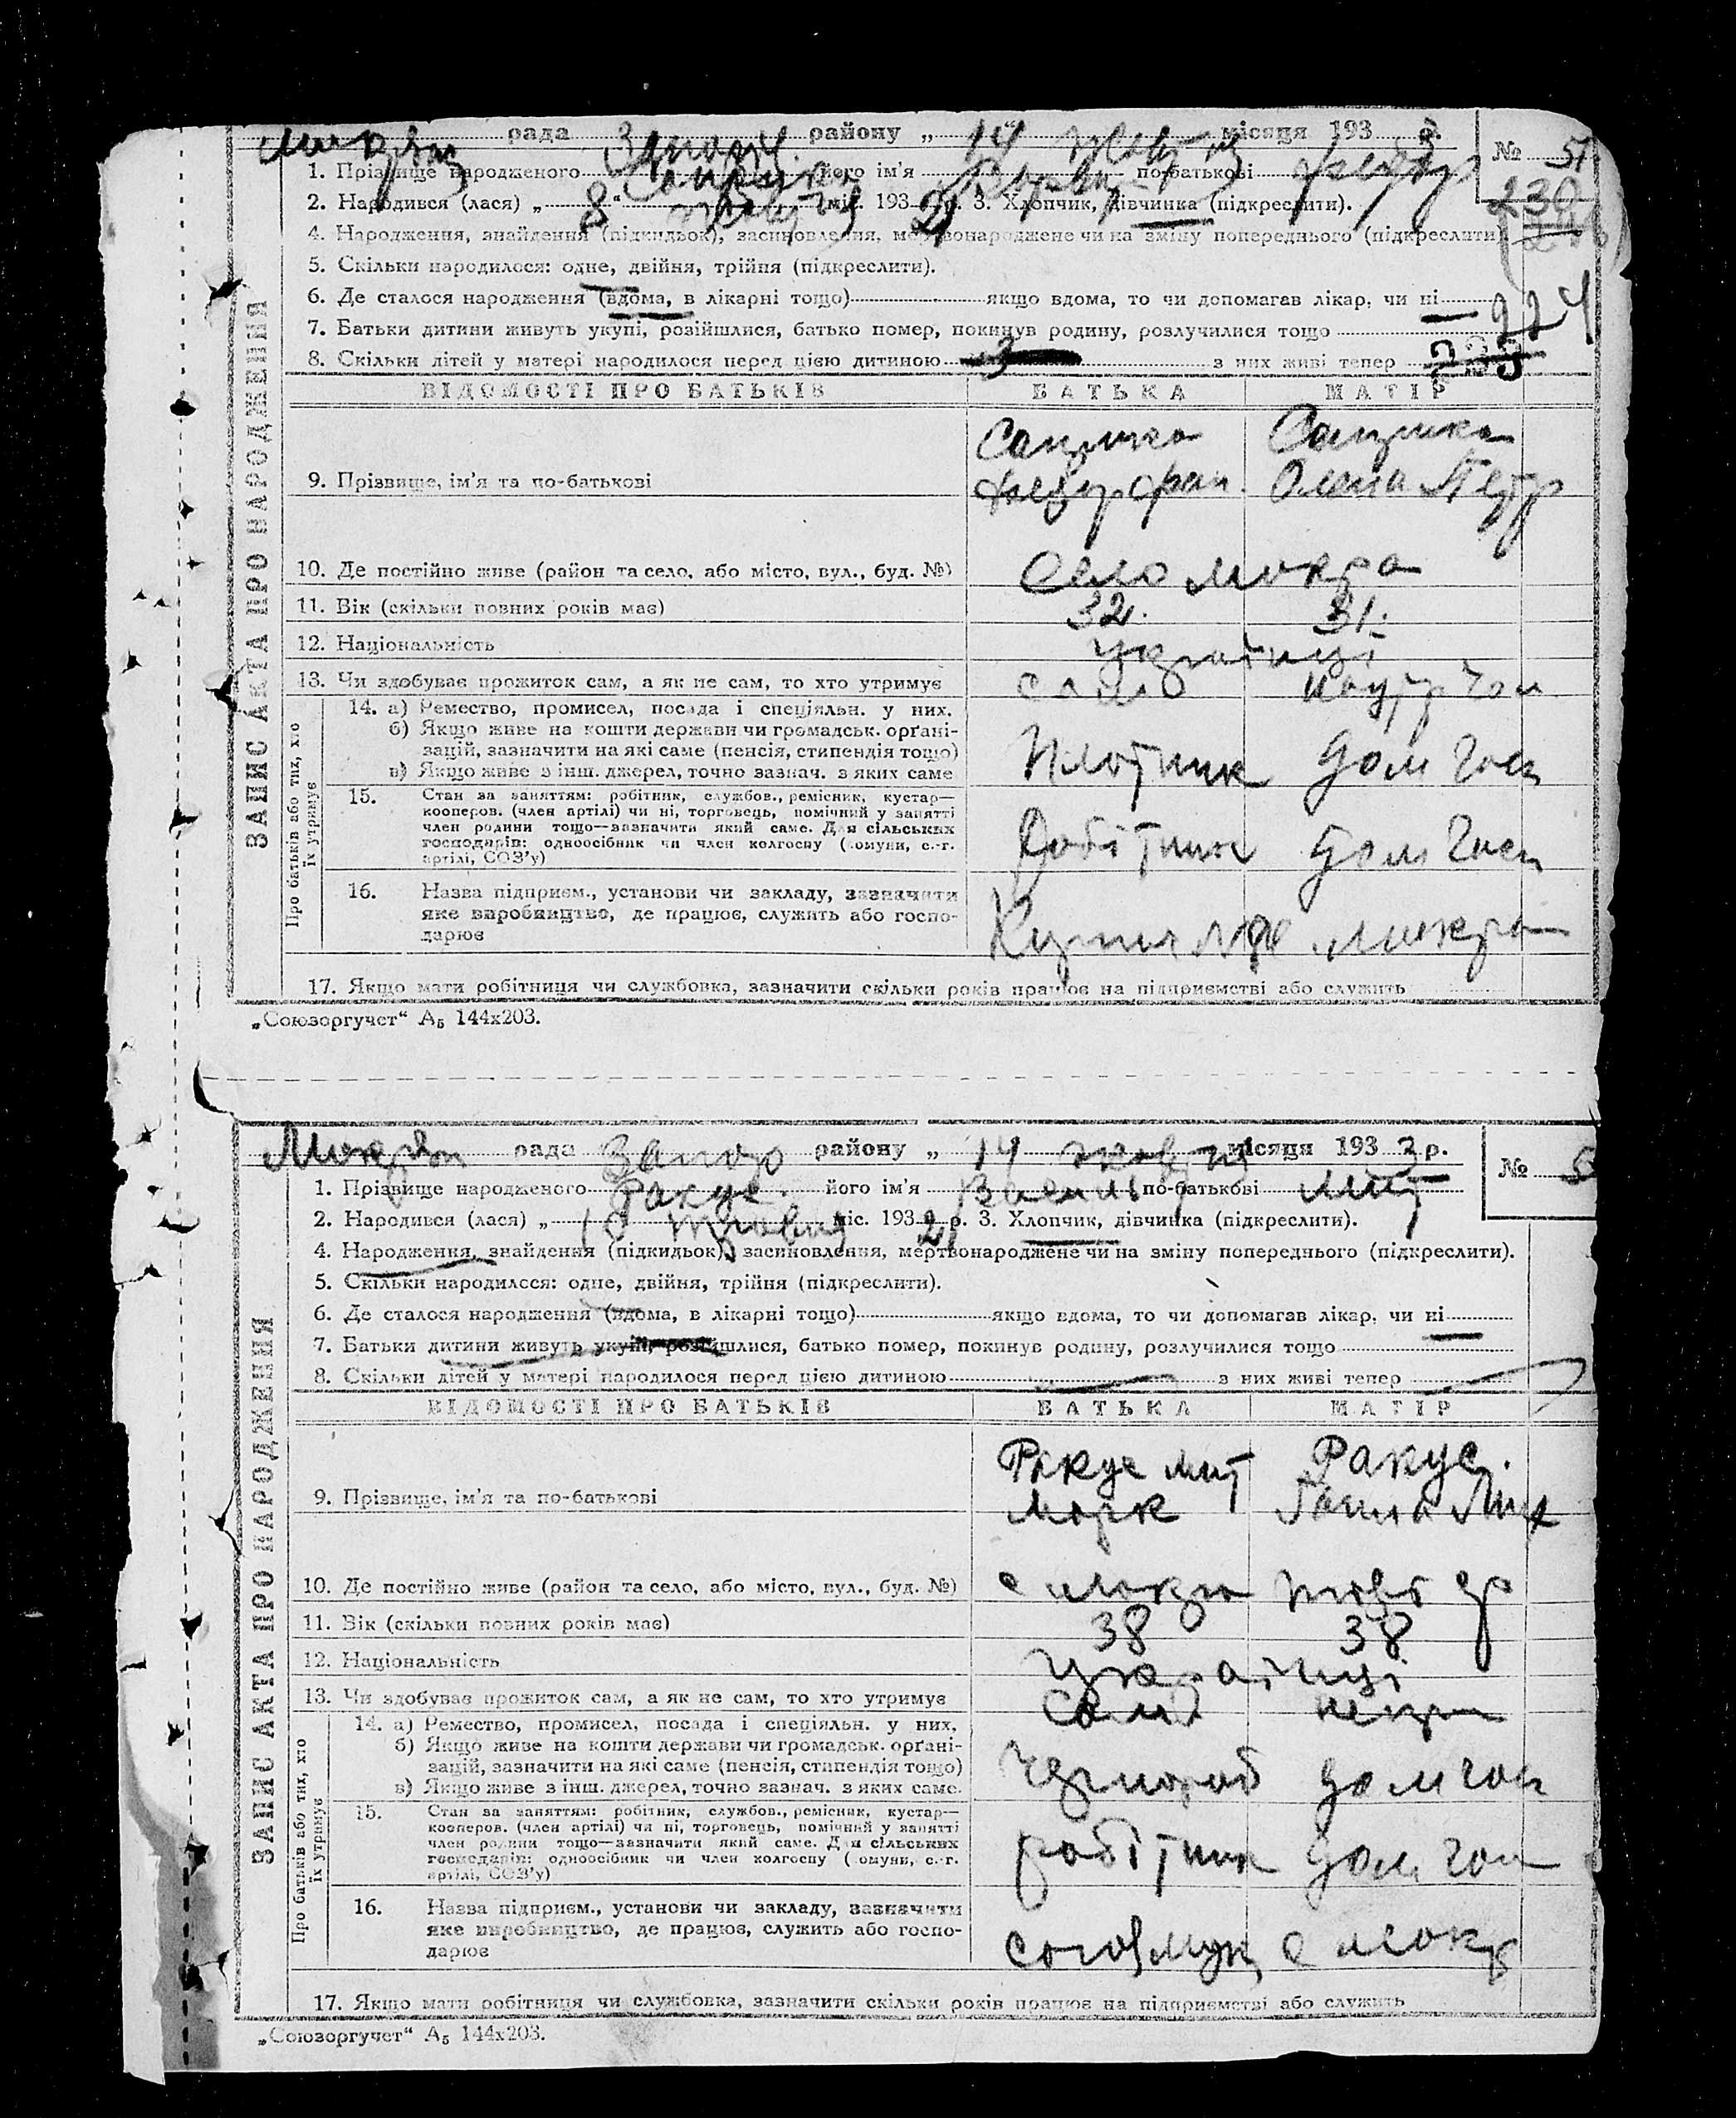 рада Запор району „ 14 жовтня місяця 193 р.
№ 51
1. Прізвище народженого його ім'я по-батькові Федор
230
2. Народився (лася) „ 8 “ жовтня міс. 193 2 р. 3. Хлопчик, дівчинка (підкреслити).
4. Народження, знайдення (підкидьок), засиновлення, мертвонароджене чи на зміну попереднього (підкреслити)
5. Скільки народилося: одне, двійня, трійня (підкреслити).
6. Де сталося народження (вдома, в лікарні тощо) якщо вдома, то чи допомагав лікар, чи ні
224
7. Батьки дитини живуть укупі, розійшлися, батько помер, покинув родину, розлучилися тощо
8. Скільки дітей у матері народилося перед цією дитиною 3 з них живі тепер
233
ВІДОМОСТІ ПРО БАТЬКІВ БАТЬКА МАТІР
9. Прізвище, ім'я та по-батькові
Олена Петр
10. Де постійно живе (район та село, або місто, вул., буд. №) Село Мокра
11. Вік (скільки повних років має) 32. 31.
12. Національність Українці
13. Чи здобуває прожиток сам, а як не сам, то хто утримує сам
14. а) Ремество, промисел, посада і спеціяльн. у них.
б) Якщо живе на кошти держави чи громадськ. органі-
зацій, зазначити на які саме (пенсія, стипендія тощо)
в) Якщо живе з інш. джерел, точно зазнач. з яких саме
Плотник дом госп
15. Стан за заняттям: робітник, службов., ремісник, кустар—
кооперов. (член артілі) чи ні, торговець, помічний у занятті
член родини тощо—зазначити який саме. Для сільських
господарів: одноосібник чи член колгоспу (комуни, с.-г.
артілі, СОЗ'у)
Робітник дом госп
16. Назва підприєм., установи чи закладу, зазначити
яке виробництво, де працює, служить або госпо-
дарює
Мокра
17. Якщо мати робітниця чи службовка, зазначити скільки років працює на підприємстві або служить
ЗАПИС АКТА ПРО НАРОДЖЕННЯ
Про батьків або тих, хто
їх утримує
„Союзоргучет“ А₅ 144х203.
Мокрян рада Запор району „ 14 жовтня місяця 193 2 р.
№ 5
1. Прізвище народженого Ракус його ім'я Василь по-батькові Мит
2. Народився (лася) „ 10 міс. 193 2 р. 3. Хлопчик, дівчинка (підкреслити).
4. Народження, знайдення (підкидьок), засиновлення, мертвонароджене чи на зміну попереднього (підкреслити).
5. Скільки народилося: одне, двійня, трійня (підкреслити).
6. Де сталося народження (вдома, в лікарні тощо) якщо вдома, то чи допомагав лікар, чи ні
7. Батьки дитини живуть укупі, розійшлися, батько помер, покинув родину, розлучилися тощо
8. Скільки дітей у матері народилося перед цією дитиною з них живі тепер
ВІДОМОСТІ ПРО БАТЬКІВ БАТЬКА МАТІР
Ракус Мит Ракус.
9. Прізвище, ім'я та по-батькові Марк
10. Де постійно живе (район та село, або місто, вул., буд. №) с Мокра
11. Вік (скільки повних років має) 38 38
12. Національність Українці
13. Чи здобуває прожиток сам, а як не сам, то хто утримує Сам
14. а) Ремество, промисел, посада і спеціяльн. у них.
б) Якщо живе на кошти держави чи громадськ. органі-
зацій, зазначити на які саме (пенсія, стипендія тощо)
в) Якщо живе з інш. джерел, точно зазнач. з яких саме.
Чорнороб дом госп
15. Стан за заняттям: робітник, службов., ремісник, кустар—
кооперов. (член артілі) чи ні, торговець, помічний у занятті
член родини тощо—зазначити який саме. Для сільських
господарів: одноосібник чи член колгоспу (комуни, с.-г.
артілі, СОЗ'у)
робітник дом госп
16. Назва підприєм., установи чи закладу, зазначити
яке виробництво, де працює, служить або госпо-
дарює
с Мокр
17. Якщо мати робітниця чи службовка, зазначити скільки років працює на підприємстві або служить
ЗАПИС АКТА ПРО НАРОДЖЕННЯ
Про батьків або тих, хто
їх утримує
„Союзоргучет“ А₅ 144х203.